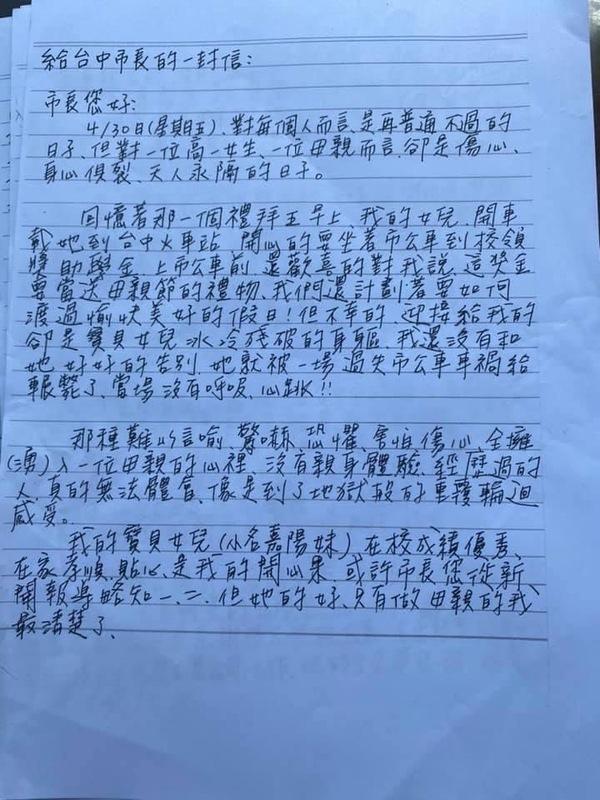 給台中市長的一封信:
市長您好:
4/30日(星期五)、對每個人而言、是再普通不過的
日子、但對一位高一女生、一位母親而言、卻是傷心、
身心俱裂、天人永隔的日子。
回憶著那一個禮拜五早上、我的女兒、開車
載她到台中火車站 開心的要坐著市公車到校領
獎助學金、上市公車前、還歡喜的對我說、這獎金
要當送母親節的禮物、我們還計劃著要如何
渡過愉快美好的假日!但不幸的、迎接給我的
卻是寶貝女兒冰冷殘破的身軀、我還沒有和
她好好的告別、她就被一場過失市公車車禍給
輾斃了、當場沒有呼吸、心跳!!
那種難以言喻、驚嚇、恐懼、害怕傷心、全擁
(湧)入一位母親的心裡、沒有親身體驗、經歷過的
人、真的無法體會、像是到了地獄般的重覆輪迴
感受。
我的寶貝女兒(小名嘉陽妹)、在校成績優秀、
在家孝順、貼心、是我的開心果、或許市長您從新
聞報導略知一、二、但她的好、只有做母親的我
最清楚了、